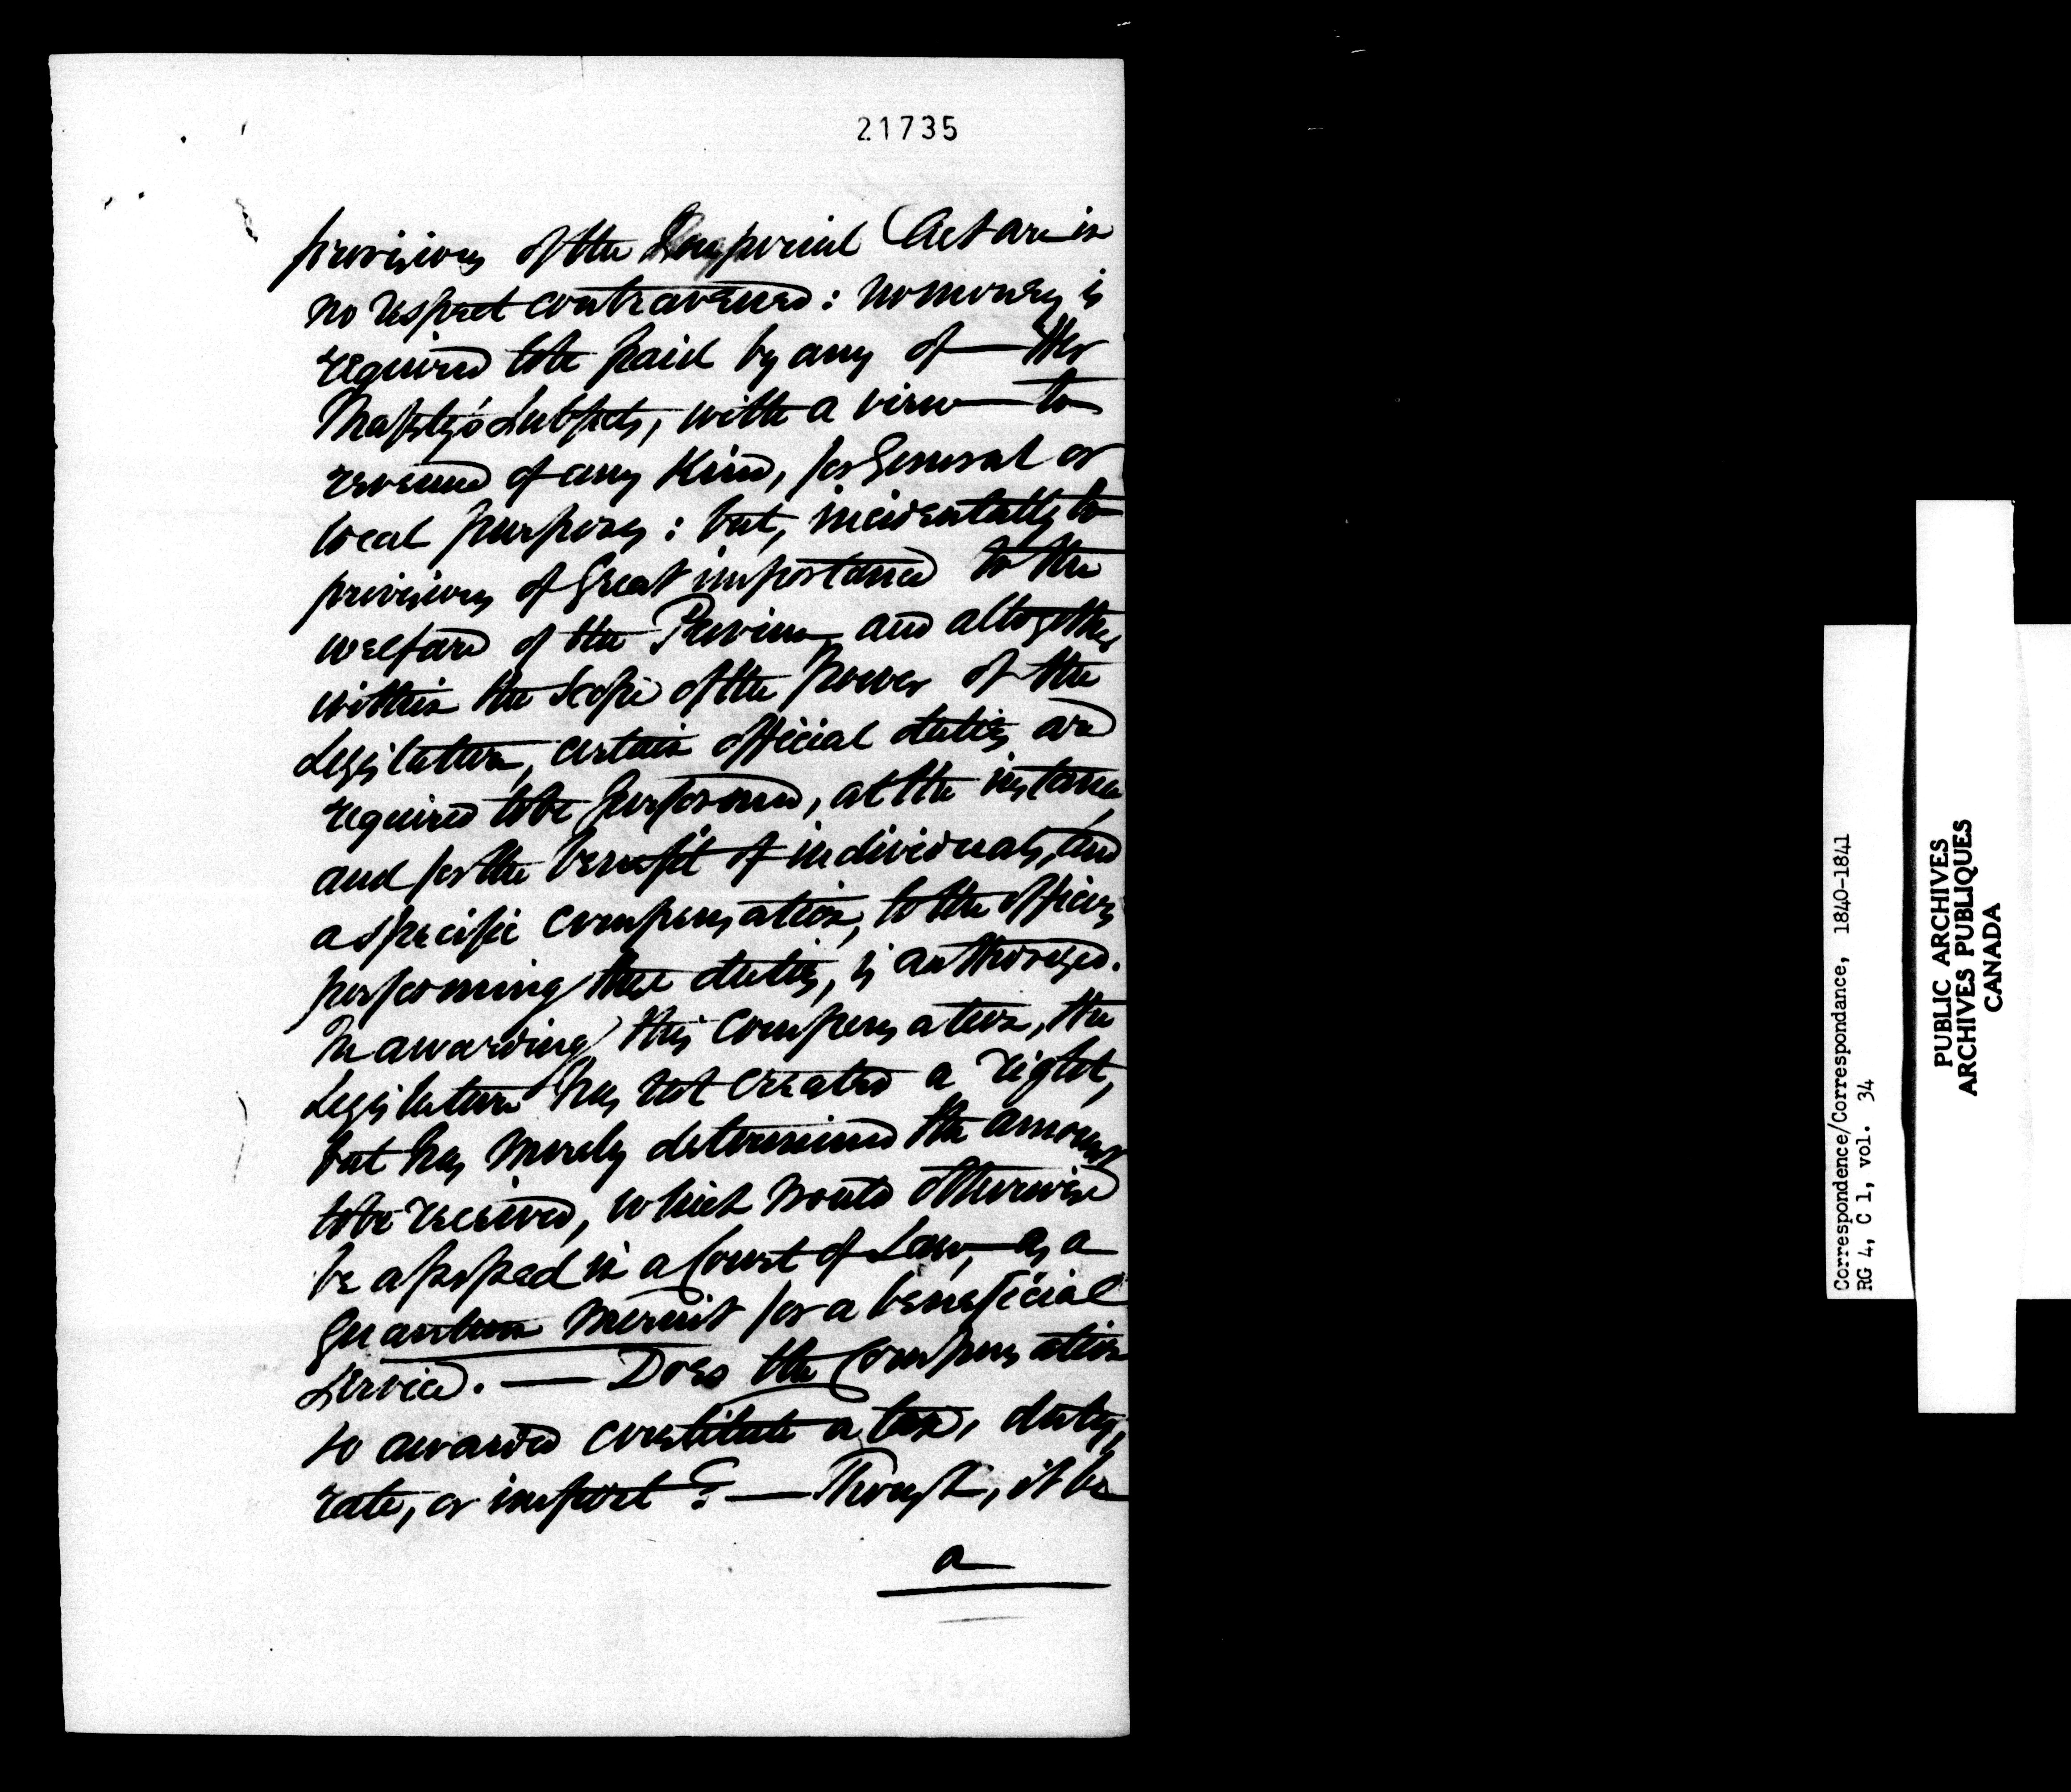 21735
provisions of the Imperial Act are in
no respect contravened: no money is
required to be paid by any of — Her
Majesty's Subjects, with a view — to
revenue of any Kind, for General or
local purposes: but, incidentally to
provisions of Great importance to the
welfare of the Province, and altogether
within the Scope of the power of the
Legislature, certain official duties are
required to be performed, at the instance,
and for the benefit of individuals, and
a specific compensation, to the officers
performing these duties, is authorized.
In awarding this compensation, the
Legislature has not created a right,
but has merely determined the amount
to be received, which would otherwise
be assessed in a Court of Law, as a
quantum meruit for a beneficial
Service. — Does the Compensation
so awarded constitute a tax, duty,
rate, or impost? — Though, it be
a
Correspondence/Correspondance, 1840-1841
RG 4, C 1, vol. 34
PUBLIC ARCHIVES
ARCHIVES PUBLIQUES
CANADA